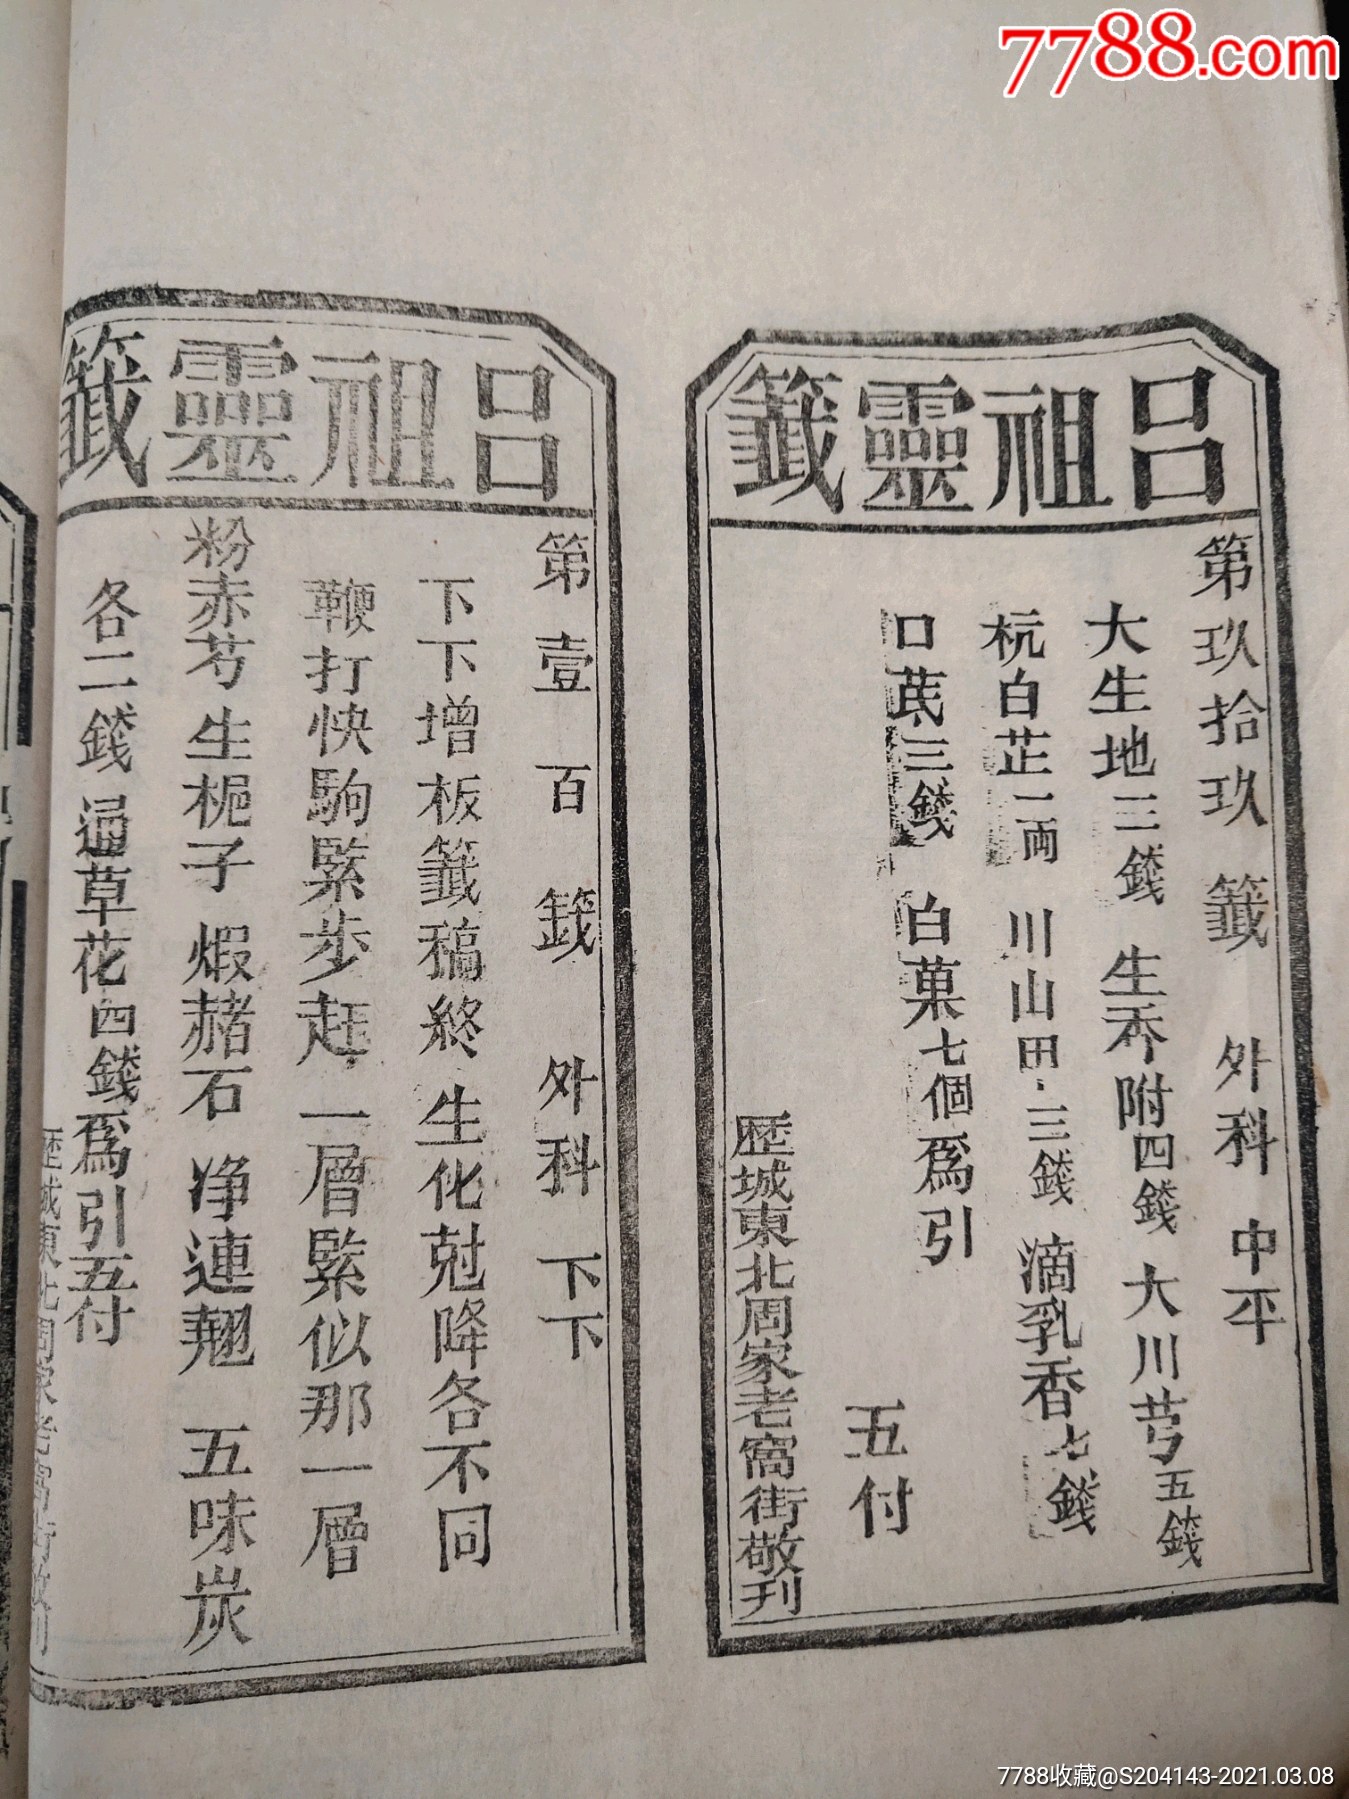 7788.com
呂祖靈籤
第玖拾玖籤 外科 中平
大生地三錢 生香附四錢 大川芎五錢
杭白芷一両 川山田三錢 滴乳香七錢
口芪三錢 白菓七個為引
五付
歷城東北周家老窩街敬刊
呂祖靈籤
第壹百籤 外科 下下
下下增板籤稿終 生化尅降各不同
鞭打快駒緊步赶 一層緊似那一層
粉赤芍 生梔子 煅赭石 净連翹 五味炭
各二錢 通草花四錢為引 五付
歷城東北周家老窩街敬刊
7788收藏@S204143-2021.03.08